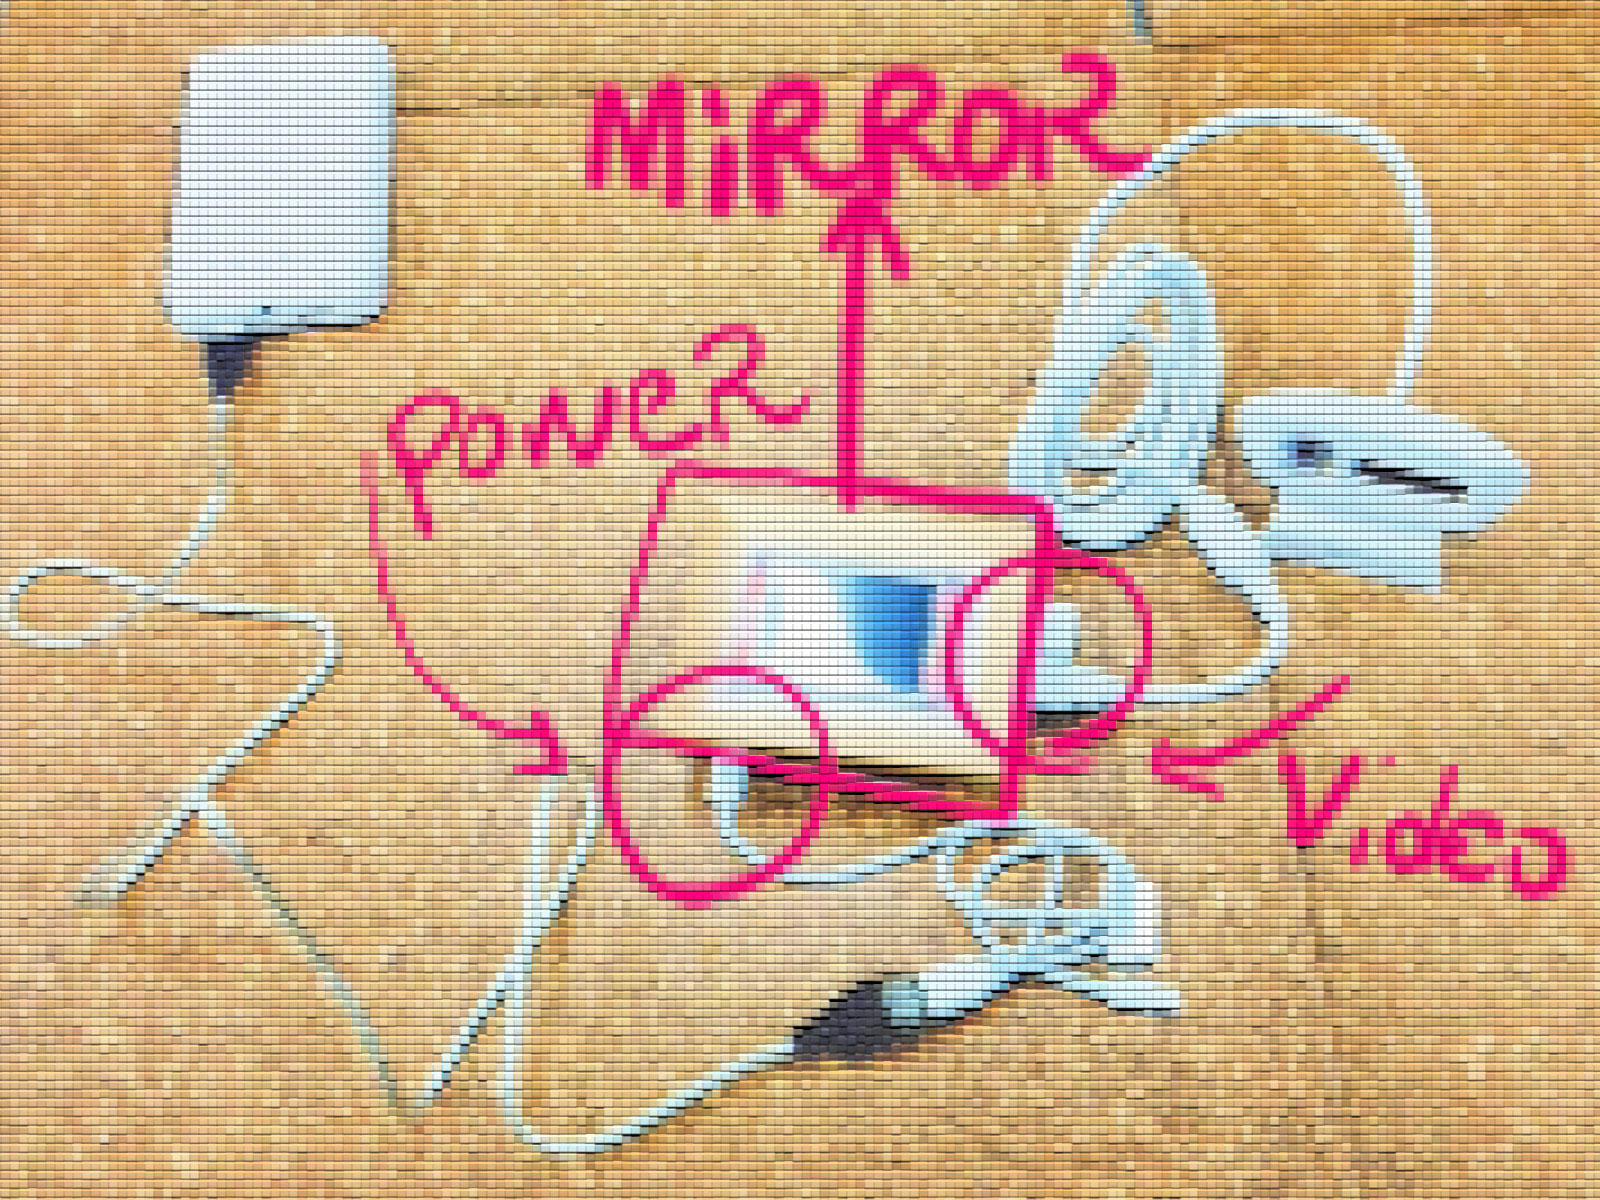 MiRROR
POWER
Video